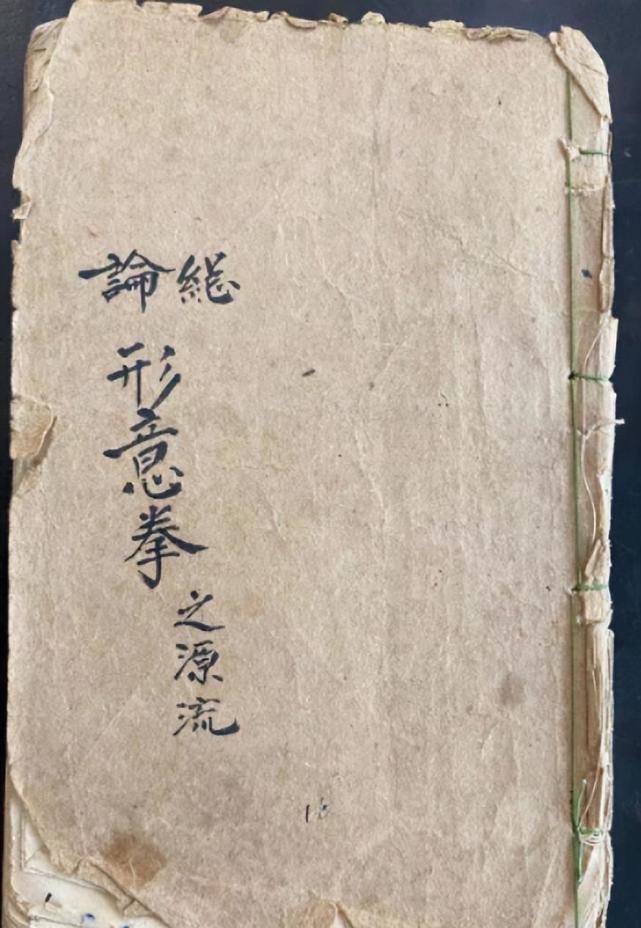 総論
形意拳
之源流